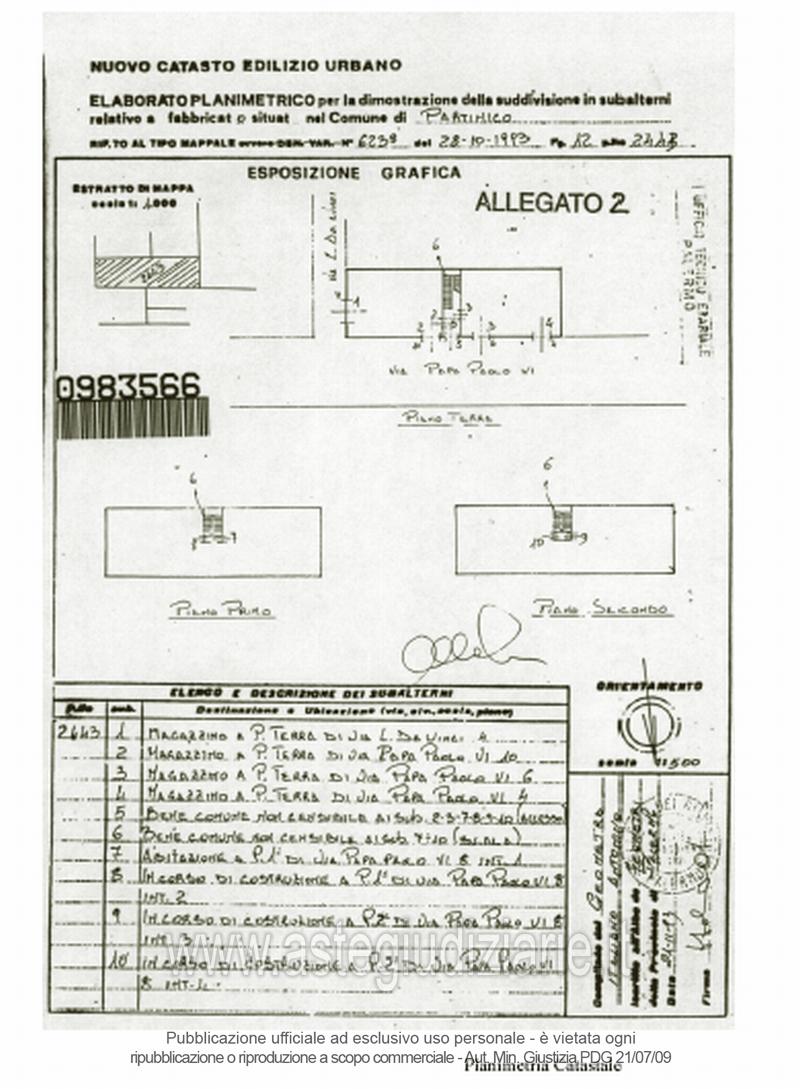 NUOVO CATASTO EDILIZIO URBANO
ELABORATO PLANIMETRICO per la dimostrazione della suddivisione in subalterni
relativo a fabbricat o situat nel Comune di PARTINICO
RIF. TO AL TIPO MAPPALE ovvero DEN. VAR. N° 6238 del 28-10-1993 Fg. 12 p.lla 2643
ESPOSIZIONE GRAFICA
ESTRATTO DI MAPPA
scala 1: 4.000
ALLEGATO 2
UFFICIO TECNICO ERARIALE
PALERMO
2643
Via L. Da Vinci
6
1
3
2
VIA PAPA PAOLO VI
0983566
PIANO TERRA
6
6
8 7
10 9
PIANO PRIMO
PIANO SECONDO
ELENCO E DESCRIZIONE DEI SUBALTERNI
ORIENTAMENTO
P.lla sub. Destinazione e Ubicazione (via, civ., scala, piano)
2643 1 MAGAZZINO A P. TERRA DI VIA L. DA VINCI 4
2 MAGAZZINO A P. TERRA DI VIA PAPA PAOLO VI 10
scala 1:500
3 MAGAZZINO A P. TERRA DI VIA PAPA PAOLO VI 6
4 MAGAZZINO A P. TERRA DI VIA PAPA PAOLO VI 4
5 BENE COMUNE NON CENSIBILE AI SUB. 2-3-7-8-9-10 (ACCESSO)
6 BENE COMUNE NON CENSIBILE AI SUB. 7÷10 (SCALA)
7 ABITAZIONE A P.1° DI VIA PAPA PAOLO VI 8 INT. 1
8 IN CORSO DI COSTRUZIONE A P.1° DI VIA PAPA PAOLO VI 8
INT. 2
9 IN CORSO DI COSTRUZIONE A P.2° DI VIA PAPA PAOLO VI 8
INT. 3
10 IN CORSO DI COSTRUZIONE A P.2° DI VIA PAPA PAOLO VI
8 INT. 4
Compilato dal GEOMETRA
Iscritto all'Albo de
della Provincia di
Data
Firma
www.astegiudiziarie.it
Pubblicazione ufficiale ad esclusivo uso personale - è vietata ogni
ripubblicazione o riproduzione a scopo commerciale - Aut. Min. Giustizia PDG 21/07/09
Planimetria Catastale